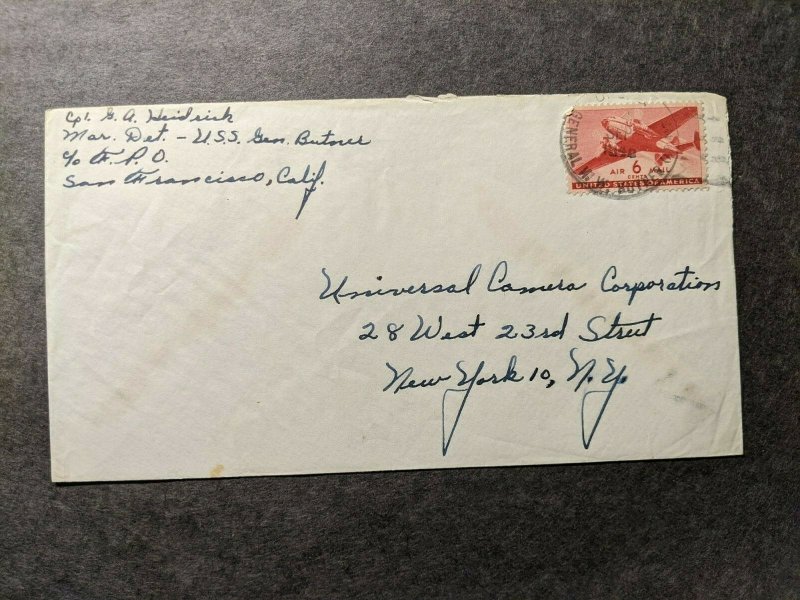 Cpl. G. A. Heidrick
Mar. Det. - U.S.S. Gen. Butner
c/o F. P. O.
San Francisco, Calif.
AIR 6 MAIL
CENTS
UNITED STATES OF AMERICA
GENERAL W.
Universal Camera Corporation
28 West 23rd Street
New York 10, N.Y.